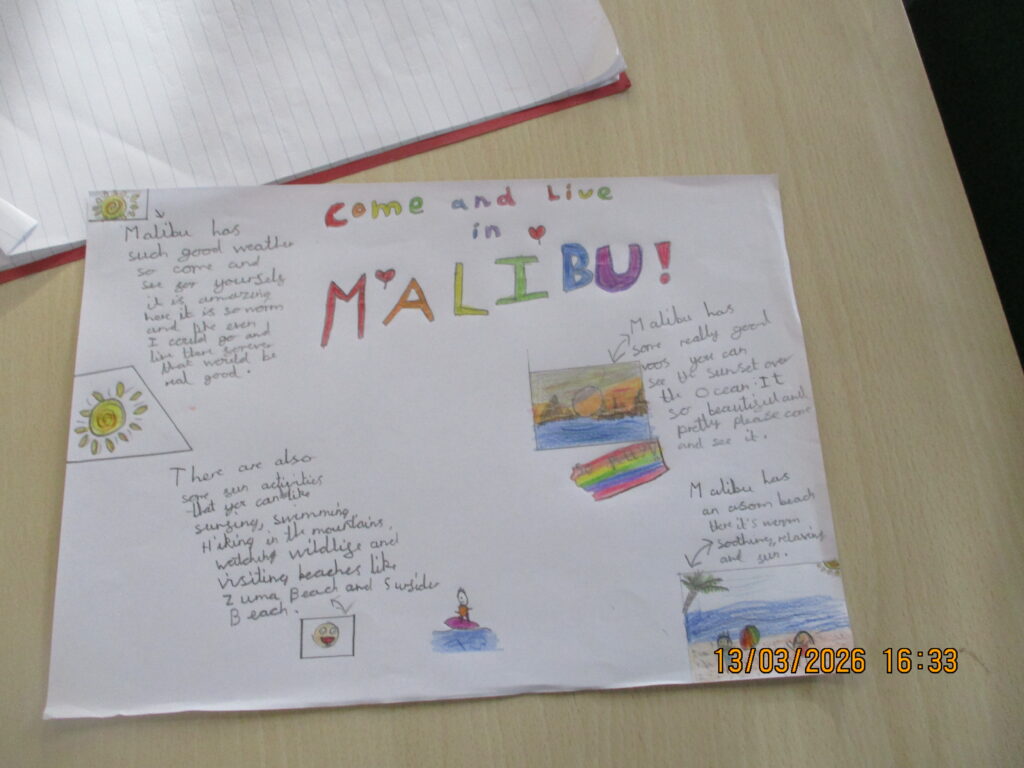 Come and Live
in
MALIBU!
Malibu has
such good weather
so come and
see for yourself
it is amazing
here it is so worm
and like even
I could go and
live there forever
that would be
real good.
Malibu has
some really good
you can
see the sunset over
the Ocean. It
so beautiful and
pretty please come
and see it.
There are also
some fun activities
that you can like
surfing, swimming
Hiking in the mountains,
watching wildlife and
visiting beaches like
Zuma Beach and Surfider
Beach.
Malibu has
an asom beach
there it's worm
soothing, relaxing
and sun.
13/03/2026 16:33